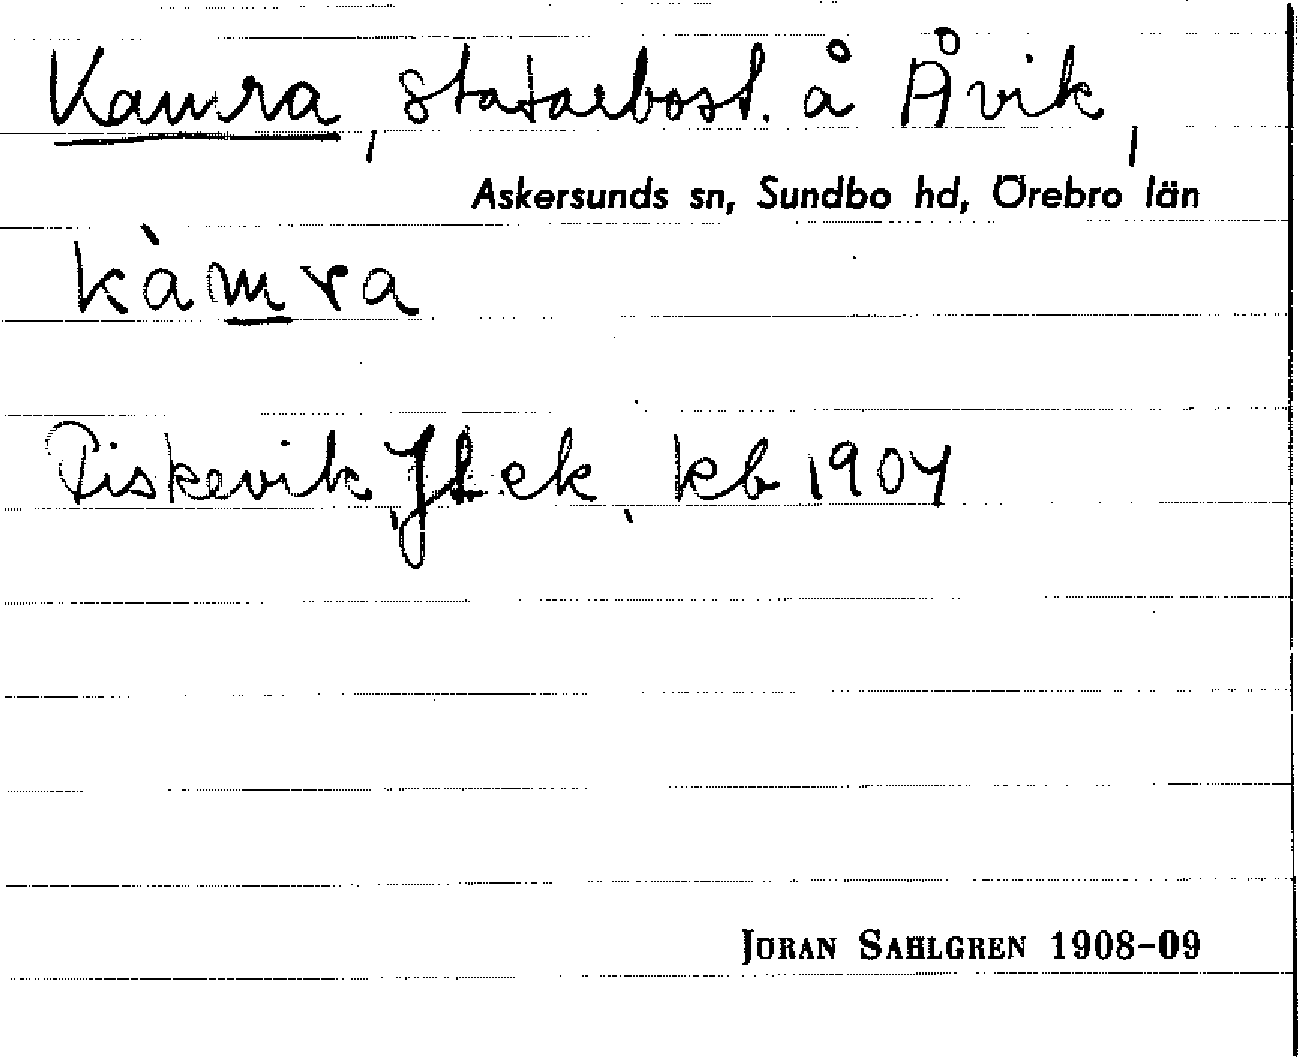 Kamra, statarbost. å Åvik,
Askersunds sn, Sundbo hd, Örebro län
kàmra
Piskevik, Jl ek, kb 1904
JÖRAN SAHLGREN 1908-09